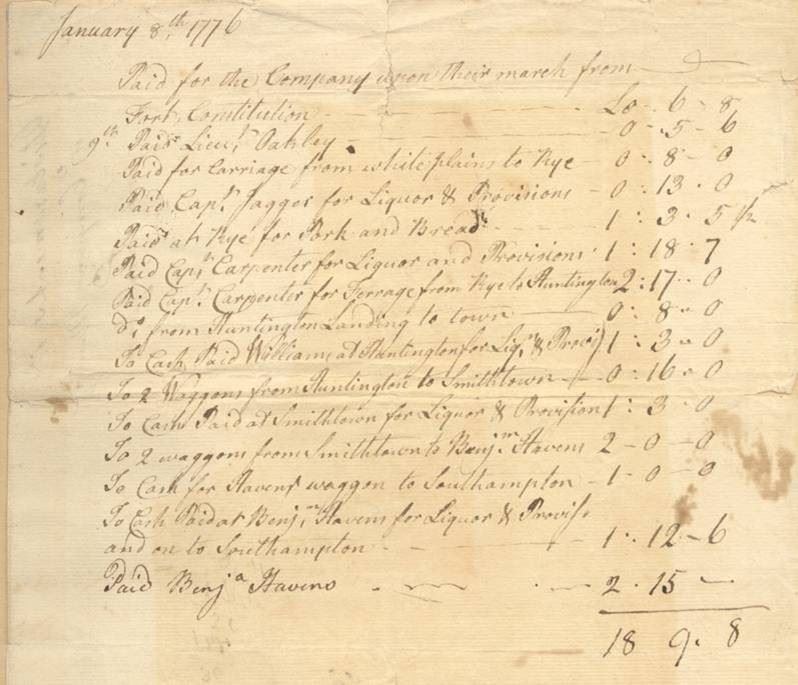 January 8.th 1776
Paid for the Company upon their march from
Fort Constitution - £0 - 6 - 8
9th. Paid Lieut Oakley - 0 - 5 - 6
Paid for Carriage from white plains to Rye - 0 : 8 - 0
Paid Capt. Jagger for Liquor & Provisions - 0 : 13 - 0
Paid at Rye for Pork and Bread - 1 : 3 - 5 1/2
Paid Capt. Carpenter for Liquor and Provisions 1 : 18 - 7
Paid Capt. Carpenter for Ferrage from Rye to Huntington 2 : 17 - 0
Do. from Huntington Landing to town - 0 : 8 - 0
To Cash Paid Williams at Huntington for Liqr. & Provis) 1 : 3 - 0
To 2 Waggons from Huntington to Smithtown - 0 : 16 - 0
To Cash Paid at Smithtown for Liquor & Provision 1 : 3 - 0
To 2 waggons from Smithtown to Benjmn. Havens 2 - 0 - 0
To Cash for Havens waggon to Southampton - 1 - 0 - 0
To Cash Paid at Benjmn. Havens for Liquor & Provis
and on to Southampton - 1 : 12 - 6
Paid Benja Havens - 2 - 15 -
18 9. 8